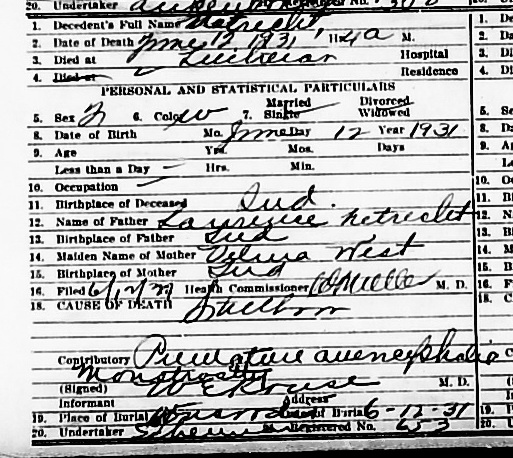 20. Undertaker No.
1. Decedent's Full Name Netrecht
2. Date of Death June 12 1931, 11:4 a M.
3. Died at Lutheran Hospital
4. Died at Residence
PERSONAL AND STATISTICAL PARTICULARS
5. Sex F 6. Color W 7. Married Single Divorced Widowed
8. Date of Birth Mo. June Day 12 Year 1931
9. Age Yrs. Mos. Days
Less than a Day — Hrs. Min.
10. Occupation
11. Birthplace of Deceased Ind.
12. Name of Father Lawrence Netrecht
13. Birthplace of Father Ind
14. Maiden Name of Mother Velma West
15. Birthplace of Mother Ind
16. Filed 6/12/31 Health Commissioner M. D.
18. CAUSE OF DEATH Stillborn
Contributory Premature anencephalic
Monstrosity
(Signed) W E Kruse M. D.
Informant Address
19. Place of Burial Date of Burial 6-12-31
20. Undertaker Registered No. 653